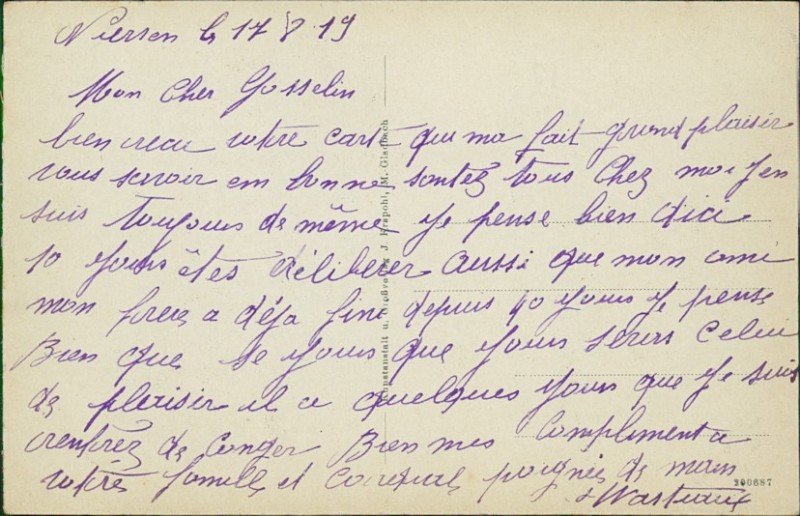 Viersen le 17 8 19
Mon Cher Gosselin
bien recu votre carte que ma fait grand plaisir
vous savoir em bonne santez tous Chez moi Jen
suis toujours de même Je pense bien dici
10 Jours êtes délibérer aussi que mon ami
mon frere a déja fini depuis 10 Jours Je pense
Bien que se Jours que Jours serus Celui
de plaisir il a quelques Jours que Je suis
rentréz de Conger Bien mes Compliment a
votre famille et Cordial poignée de main
Kunstanstalt u. Großverlag J. Krapohl, M.-Gladbach
200887